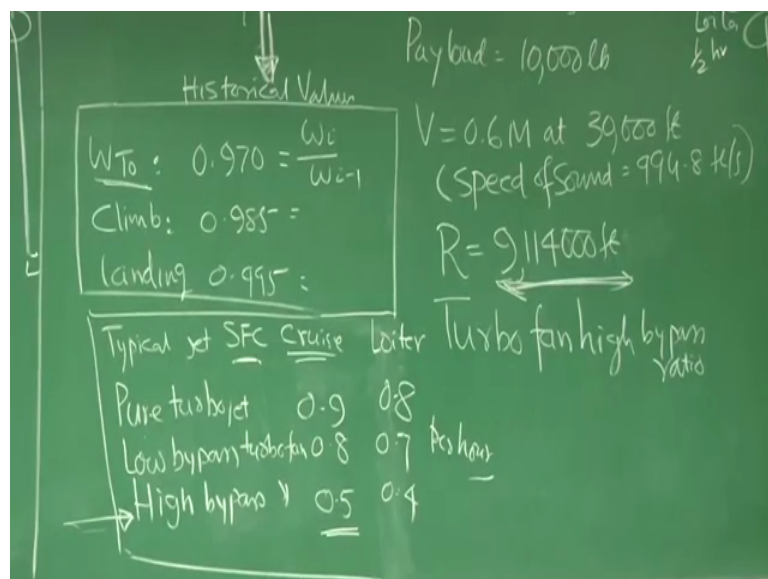 Historical Values
WTO : 0.970 = Wi / Wi-1
Climb: 0.985 =
landing 0.995 :
Typical jet SFC Cruise Loiter
Pure turbojet 0.9 0.8
Low bypass turbofan 0.8 0.7 Per hour
High bypass " 0.5 0.4
Payload = 10,000 lb
Loiter
1/2 hr
V = 0.6 M at 30,000 ft
(Speed of Sound = 994.8 ft/s)
R = 9,114000 ft
Turbo fan high bypass
ratio